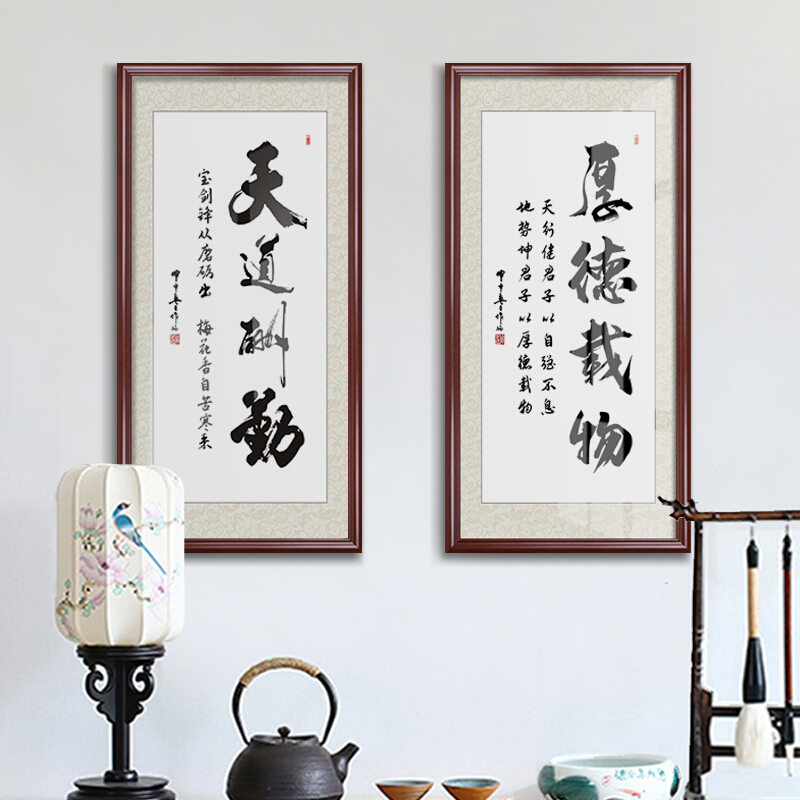 天道酬勤
宝剑锋从磨砺出 梅花香自苦寒来
厚德载物
天行健君子以自强不息
地势坤君子以厚德载物